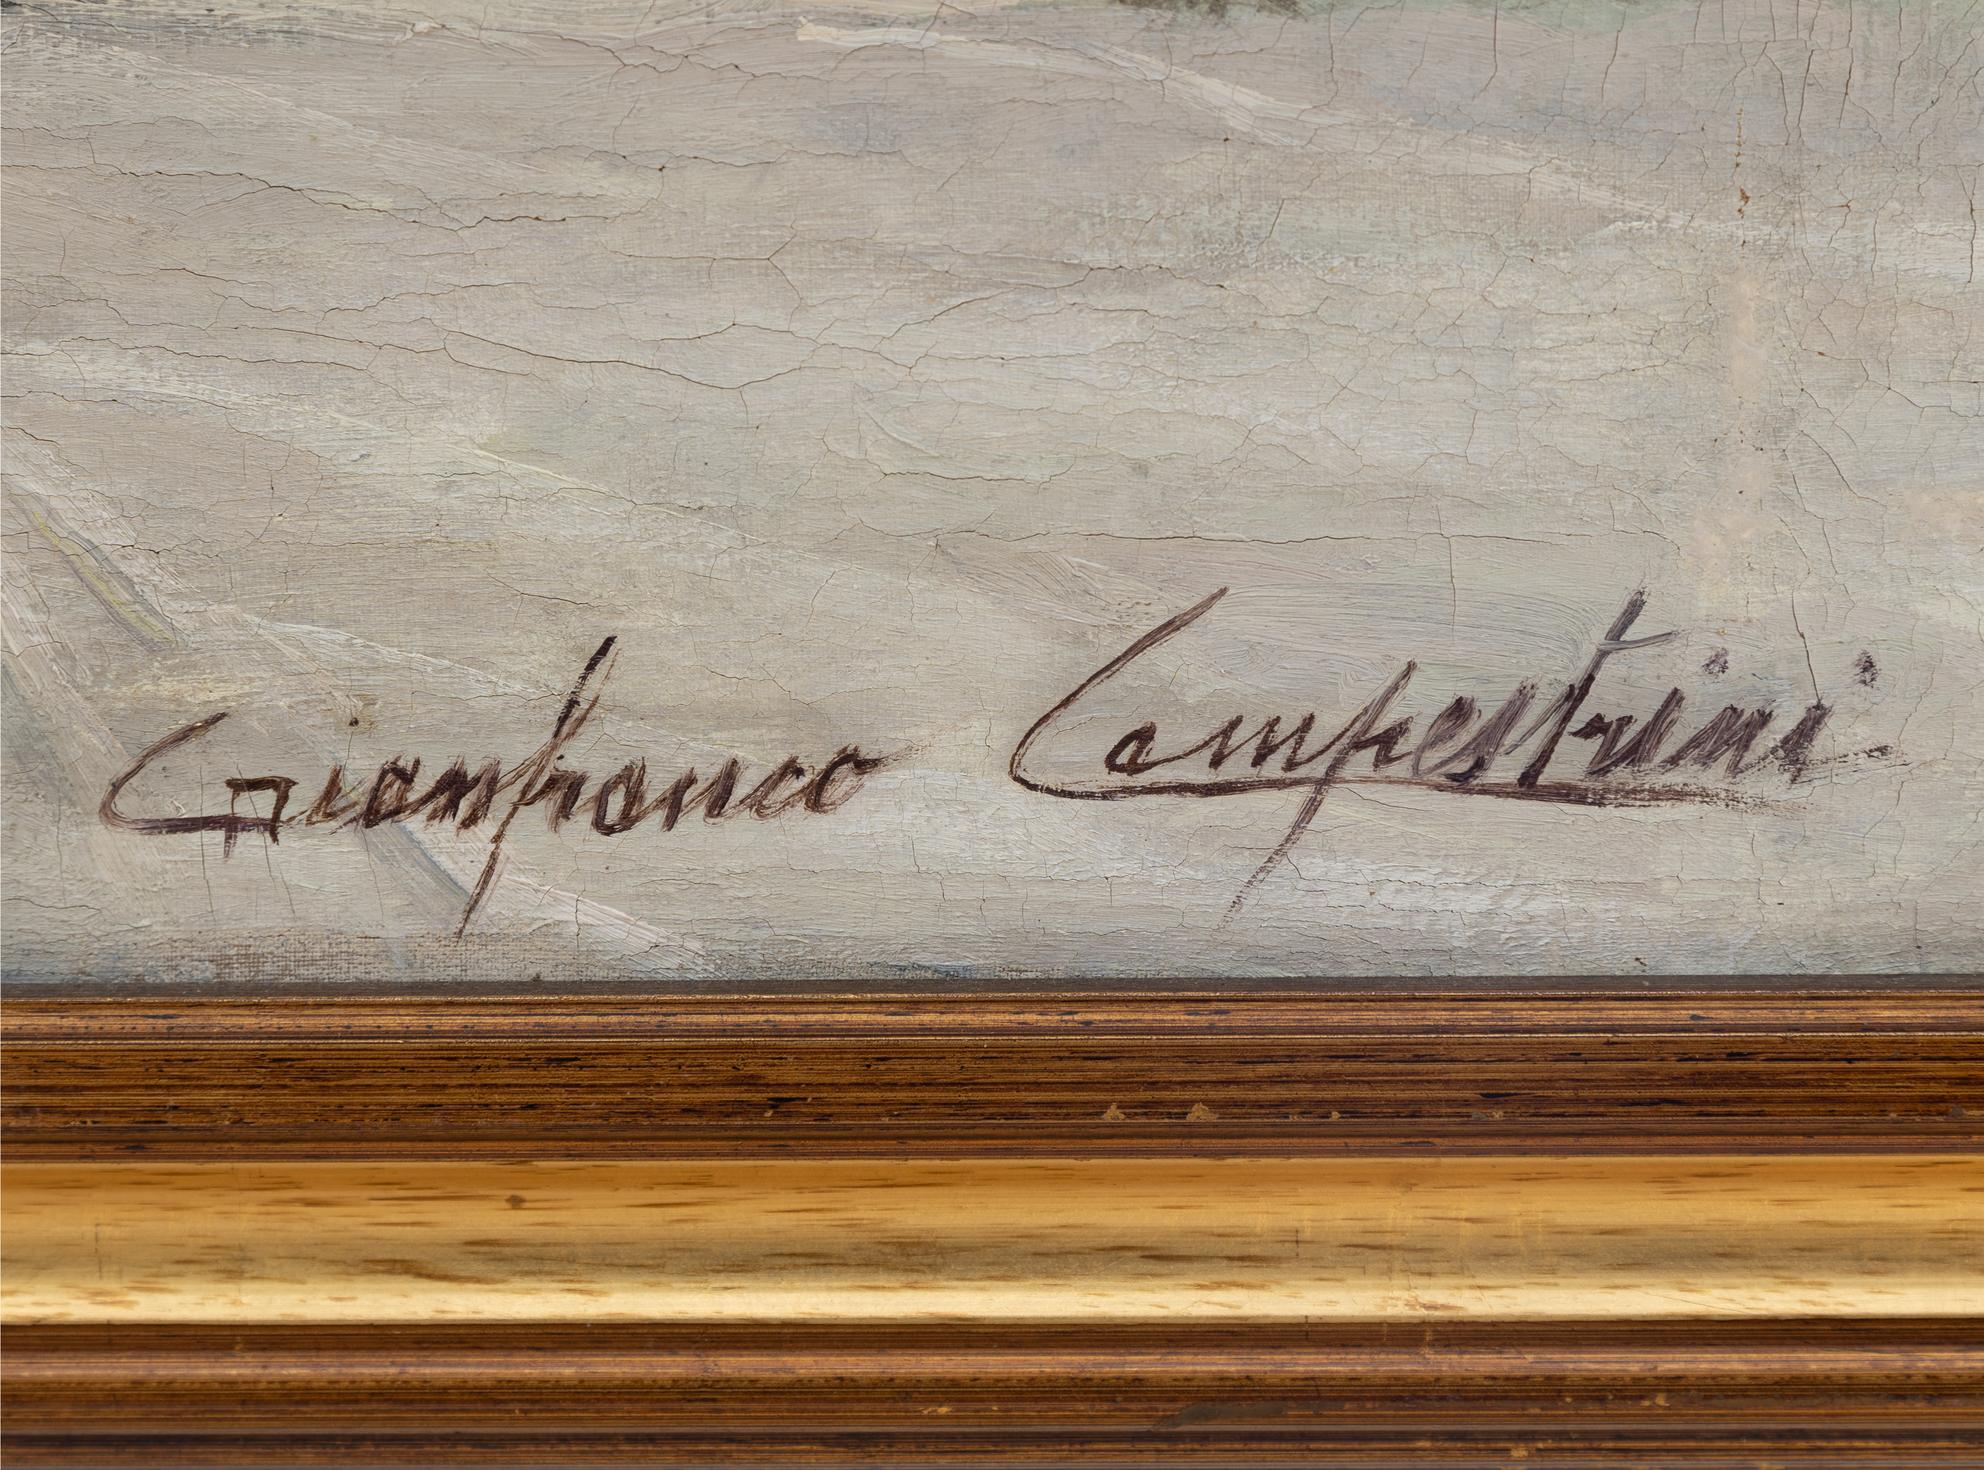 Gianfranco Campestrini